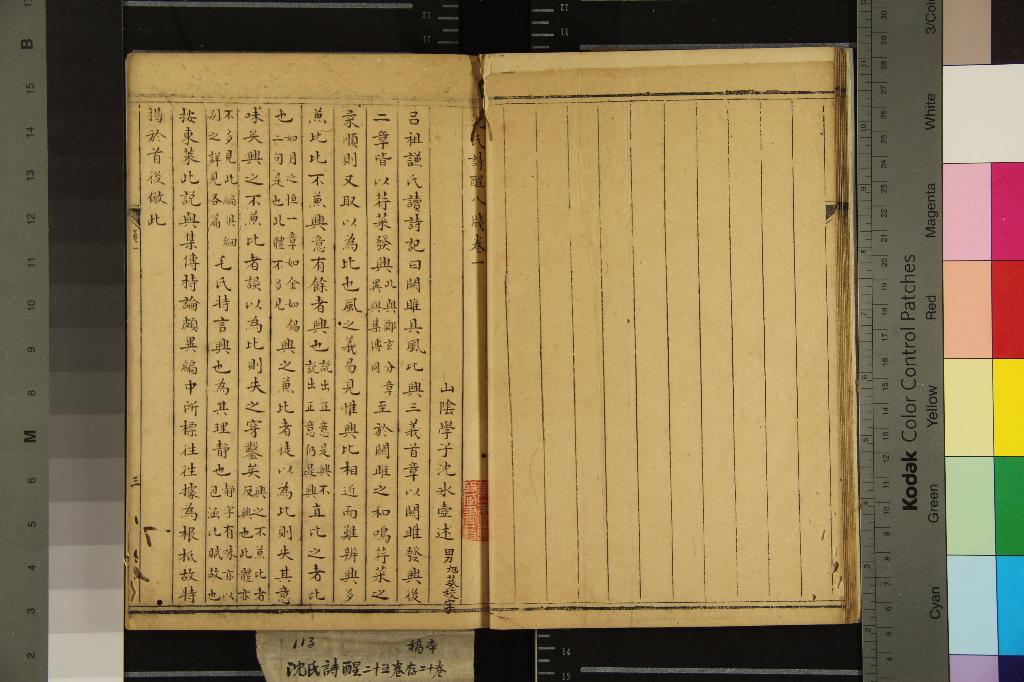 沈氏詩醒八牋卷一
山陰學子沈冰壺述 男旭葵校字
呂祖謙氏讀詩記曰關雎具風比興三義首章以關雎發興後
二章皆以荇菜發興此與鄭玄分章異與集傳同至於關雎之和鳴荇菜之
柔順則又取以為比也風之義易見惟興比相近而難辨興多
兼比比不兼興意有餘者興也說出正意是興不說出正意仍是興直比之者比
也如月之恒一章如金如錫二句是也此體不多見興之兼比者徒以為比則失其意
味矣興之不兼比者誤以為比則失之穿鑿矣興之不兼比者反興也此體亦
不多見此編俱細別之詳見各篇毛氏特言興也為其理靜也靜字有味亦以包涵比賦故也
按東萊此說與集傳持論頗異編中所標往往據為根柢故特
揭於首後倣此
三
113
稿本
沈氏詩醒二十五卷存二十卷
Kodak Color Control Patches
Cyan
Green
Yellow
Red
Magenta
White
3/Color
B
M